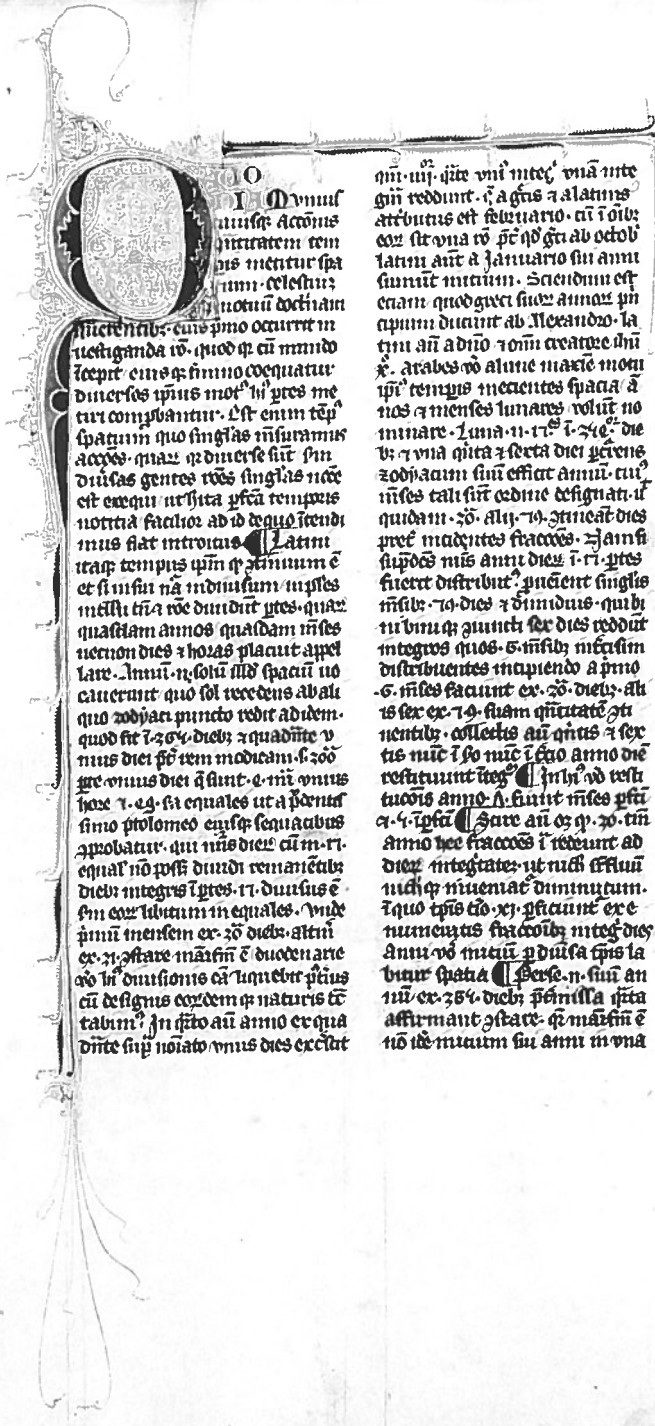 IO
I Omnius
niusq; acc̄onis
quātitatem tem
pis metitur spa
cium · celestiuʒ
motuū doctͥnam
inuetentibʒ · eius pͥmo occurrit in
uestiganda rō · quod q̄ cū mundo
īcepit eiusq; fīnino coequatur
diuersos ip̄ius motꝰ hiꝰ ꝑtes me
tiri comꝓbantur · Est enim tēpꝰ
spatium quo singl̓as m̄suramus
acc̄oēs · quaꝝ q̄ diuerse sūt · sm
diūsas gentes rōēs singl̓as nc̄ce
est exequi ut hita ꝑfcā temporis
notitia facilior ad id de quo ītendi
mus fiat introitus ¶ Latini
itaq; tempus ip̄m q̄ ꝯtinuum ē
et si in sui nā indiuisum in pl̓es
intellū tn̄ ⁊ rōe diuidūt ꝑtes · quaꝝ
quasdam annos quasdam m̄ses
necnon dies ⁊ horas placuit appel
lare · Annū · n̄ · solū ill̓d spaciū uo
cauerunt quo sol recedens ab ali
quo zodyaci puncto redit ad idem ·
quod fit ī · 365 · diebʒ ⁊ quadn̄te v
nius diei p̄t̄ rem modicam · s̄ · 300
ꝑte vnius diei q̄ sunt · 4 · mī vnius
hore ⁊ · 48 · sa equales ut a p̄dentis
simo ptolomeo eiusq; sequacibus
ꝯprobatur · qui nr̄is dieꝝ cū · m · 12 ·
equal̓ nō poss̄ diuidi remanētibʒ
diebʒ integris ī ꝑtes · 12 · diuisus ē
sm eoꝝ libitum inequales · vnde
pͥmū mensem ex · 30 · diebʒ · altm̄
ex · 31 · ꝯstare maīfm̄ ē duodenarie
vō hiꝰ diuisionis cā liquebit p̄tius
cū de signis eoꝝdem q̄ naturis tͨ
tabim᷒ · In qͣrto aū anno ex qua
dn̄te suꝑ noīato vnius dies excͥscit
qm̄ · iiiiᵒʳ · qͣrte vniꝰ integͥ vnā inte
gm̄ reddunt · q̄ a gͥcis ⁊ a latinis
attͥbutus est februario · cū ī oīibʒ
eoꝝ sit vna rō p̄t̄ qd̓ gͥci ab octob̓
latini aūt a Januario sui anni
sumūt initium · Sciendum est
eciam quod greci suoꝝ annoꝝ pͥn
cipium ducunt ab Alexandro · la
tini aū a dn̄o ⁊ oīm creatore ihū
xͦ · arabes vō a lune maxīe motu
ip̄iꝰ temporis metientes spacia ā
nos ⁊ menses lunares volūt no
minare · Luna · n · 12ᵉˢ ī · 354ᵒʳ · die
bʒ ⁊ vna qͥnta ⁊ sexta diei ꝑcͥrens
zodyacum suū efficit annū · cuiꝰ
m̄ses tali sūt ordine designati · ut
quidam · 30 · alij · 29 · ꝯtineāt dies
pret̄ incidentes fracc̄oēs · Nam si
suꝑdc̄ēs mīs anni dieꝝ ī · 12 · ꝑtes
fuerit distributꝰ ꝓueniēt singlis
m̄sibʒ · 29 · dies ⁊ dimidius · quibʒ
in binis q̄ ꝯiuncti sex dies reddūt
integros quos · 6 · m̄sibʒ intͨcisim
distribuentes incipiendo a pͥmo
· 6 · m̄ses faciunt ex · 30 · diebʒ · ali
is sex ex · 29 · suam qn̄titatē ꝯti
nentibʒ · collectis aū qͥntis ⁊ sex
tis nūc ī 2o nūc ī t̄cio anno diē
restituunt īteg̓ ¶ In hiꝰ vō resti
tucōis anno · 7 · fiunt m̄ses ꝑfcī
⁊ · 5 · īꝑfcī ¶ Scire aū oꝫ q̄ · 30 · tm̄
anno hee fraccōēs ī redeunt ad
dieꝝ integtatez · ut nich̓ effluū
nich̓ q̄ inueniat̓ diminutum ·
ī quo tp̄is cͥso · xj · ꝑficiunt̓ ex e
numeratis fraccōibʒ integͥ dies
anni vō initiū ꝑ diūsa tp̄is la
bitur spatia ¶ Perse · n · suū an
nū ex · 365 · diebʒ p̄t̄missa qͣrta
affirmant ꝯstare · q̄ maīfm̄ ē
nō idē initium sui anni in vna